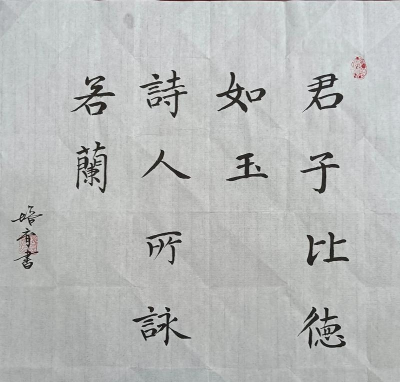 君子比德
如玉
詩人所詠
若蘭
培育書